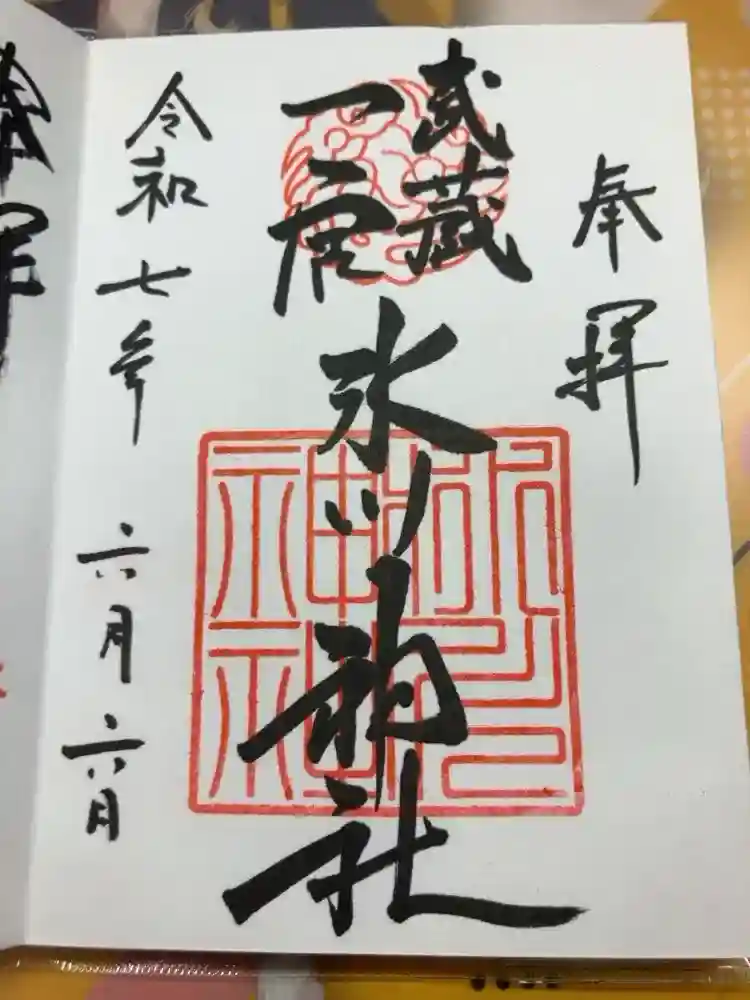 奉拝
武蔵
一宮
氷川神社
令和七年
六月六日